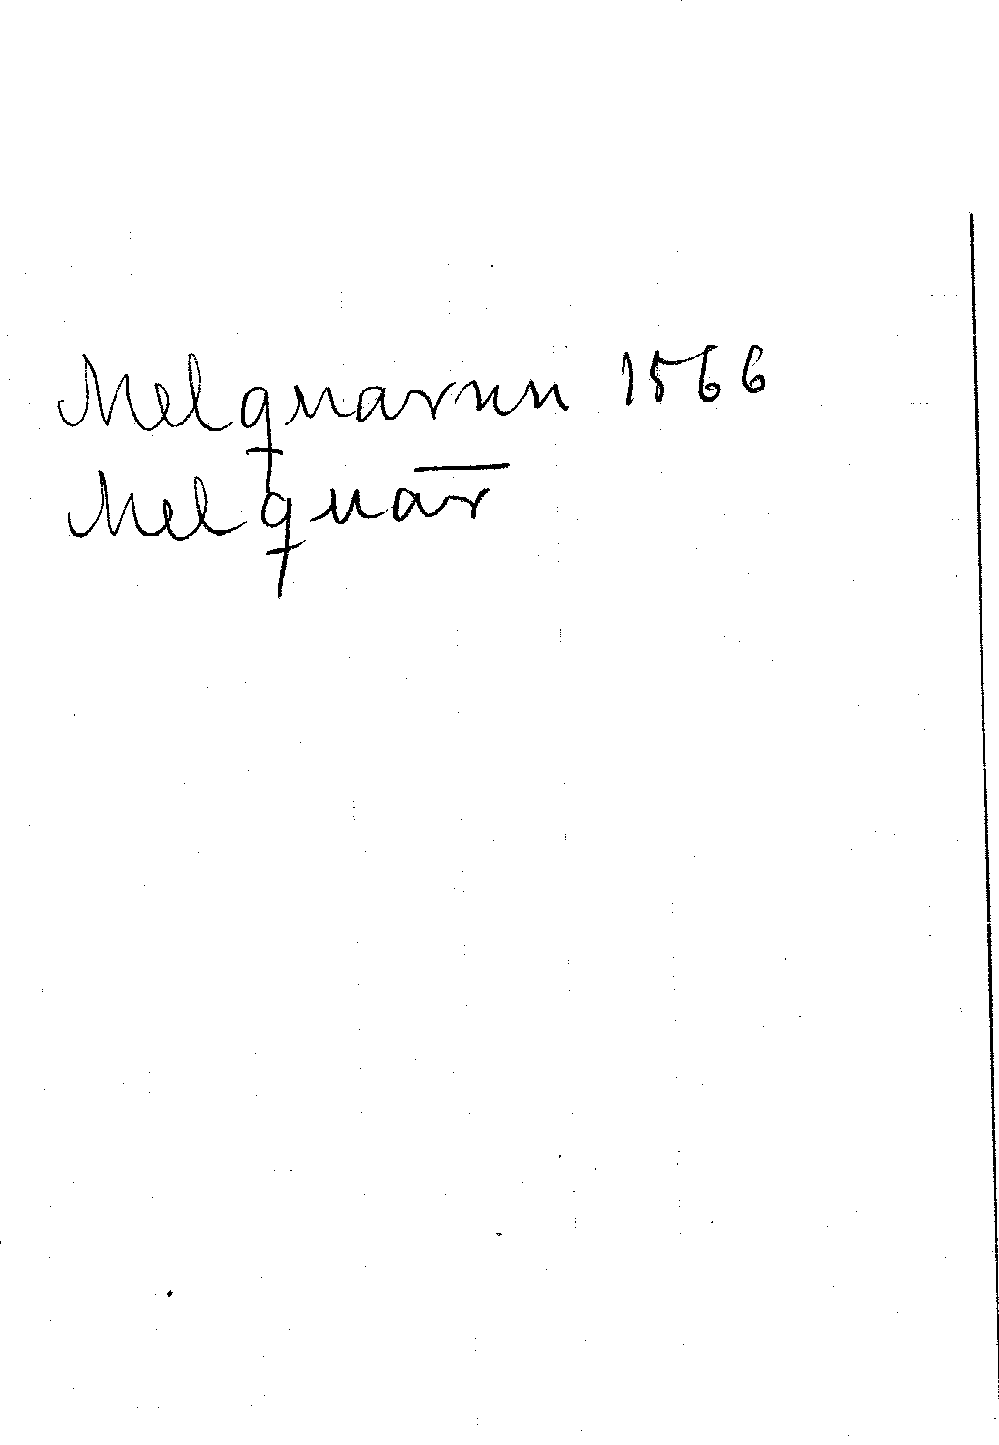 Melquarun 1566
Melquar̅